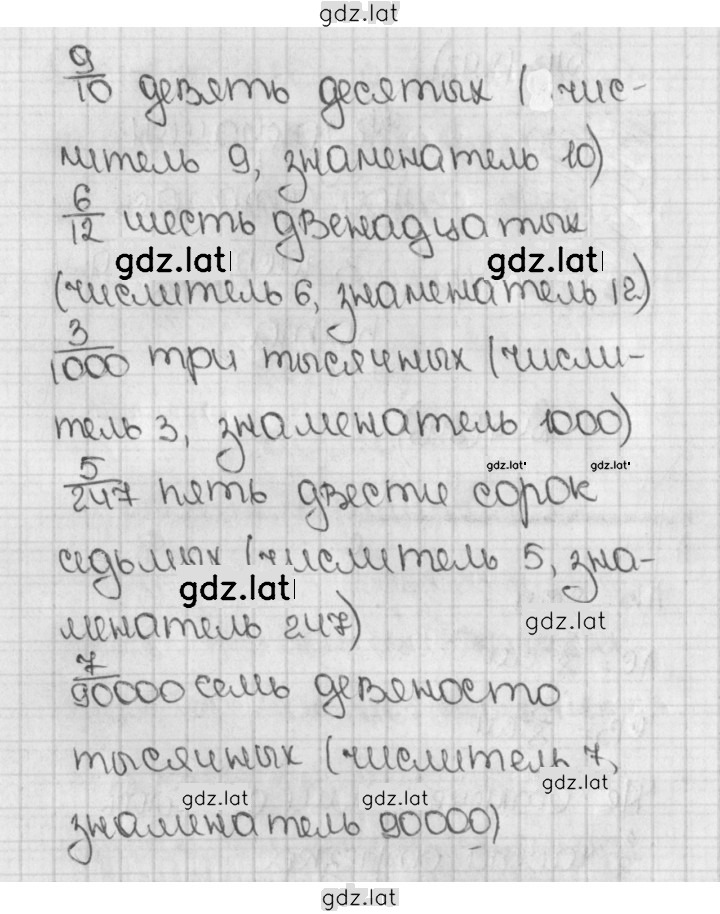 gdz.lat
9/10 девять десятых (чис-
литель 9, знаменатель 10)
6/12 шесть двенадцатых
gdz.lat gdz.lat
(числитель 6, знаменатель 12)
3/1000 три тысячных (числи-
тель 3, знаменатель 1000)
gdz.lat gdz.lat
5/247 пять двести сорок
седьмых (числитель 5, зна-
gdz.lat
менатель 247)
gdz.lat
7/90000 семь девяносто
тысячных (числитель 7,
gdz.lat
gdz.lat gdz.lat
знаменатель 90000)
gdz.lat